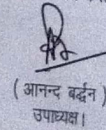 ( आनन्द बर्द्धन )
उपाध्यक्ष।